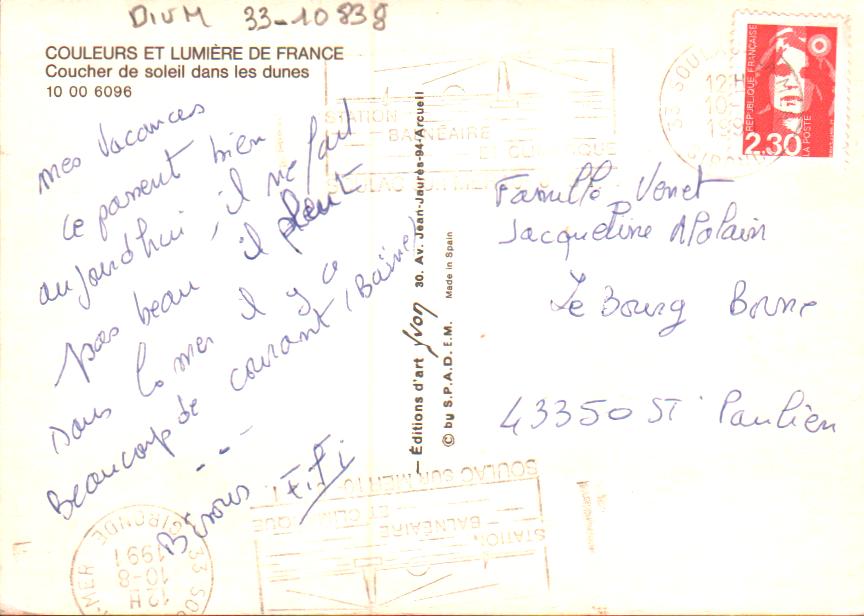 DIVM 33-10838
COULEURS ET LUMIÈRE DE FRANCE
Coucher de soleil dans les dunes
10 00 6096
mes vacances
ce passent bien
aujourd'hui, il ne fait
pas beau il pleut
Dans la mer il y a
Beaucoup de courant (Baïne)
- - -
Bisous Fifi
— Éditions d'art yvon 30. Av. Jean-Jaurès-94-Arcueil
© by S.P.A.D.E.M. Made in Spain
RÉPUBLIQUE FRANÇAISE
2,30
LA POSTE
33 SOULAC
12H
10-
199
GIRONDE
STATION
BALNÉAIRE
ET CLIMATIQUE
SOULAC SUR MER
Famille Venet
Jacqueline
Le Bourg Borne
43350 St Paulien
SOULAC SUR MER
ET CLIMATIQUE
BALNÉAIRE
STATION
33 SOU
12H
10-8
1991
GIRONDE
MER